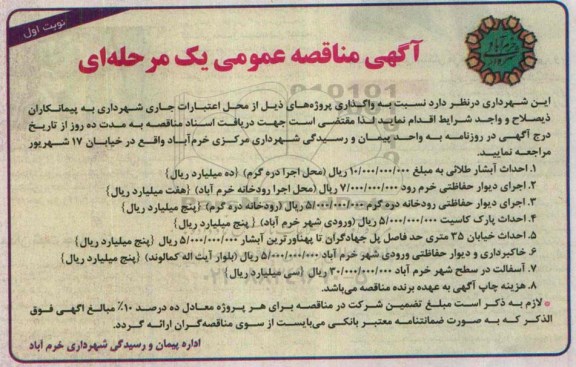 نوبت اول
آگهی مناقصه عمومی یک مرحله‌ای
این شهرداری درنظر دارد نسبت به واگذاری پروژه‌های ذیل از محل اعتبارات جاری شهرداری به پیمانکاران
ذیصلاح و واجد شرایط اقدام نماید لذا مقتضی است جهت دریافت اسناد مناقصه به مدت ده روز از تاریخ
درج آگهی در روزنامه به واحد پیمان و رسیدگی شهرداری مرکزی خرم آباد واقع در خیابان ۱۷ شهریور
مراجعه نمایید.
۱. احداث آبشار طلائی به مبلغ ۱۰/۰۰۰/۰۰۰/۰۰۰ ریال (محل اجرا دره گرم) {ده میلیارد ریال}
۲. اجرای دیوار حفاظتی خرم رود ۷/۰۰۰/۰۰۰/۰۰۰ ریال (محل اجرا رودخانه خرم آباد) {هفت میلیارد ریال}
۳. اجرای دیوار حفاظتی رودخانه دره گرم ۵/۰۰۰/۰۰۰/۰۰۰ ریال (رودخانه دره گرم) {پنج میلیارد ریال}
۴. احداث پارک کاسیت ۵/۰۰۰/۰۰۰/۰۰۰ ریال (ورودی شهر خرم آباد) {پنج میلیارد ریال}
۵. احداث خیابان ۳۵ متری حد فاصل پل جهادگران تا پهناورترین آبشار ۵/۰۰۰/۰۰۰/۰۰۰ ریال {پنج میلیارد ریال}
۶. خاکبرداری و دیوار حفاظتی ورودی شهر خرم آباد ۵/۰۰۰/۰۰۰/۰۰۰ ریال (بلوار آیت اله کمالوند) {پنج میلیارد ریال}
۷. آسفالت در سطح شهر خرم آباد ۳۰/۰۰۰/۰۰۰/۰۰۰ ریال {سی میلیارد ریال}
۸. هزینه چاپ آگهی به عهده برنده مناقصه می‌باشد.
* لازم به ذکر است مبلغ تضمین شرکت در مناقصه برای هر پروژه معادل ده درصد ۱۰٪ مبالغ آگهی فوق
الذکر که به صورت ضمانتنامه معتبر بانکی می‌بایست از سوی مناقصه‌گران ارائه گردد.
اداره پیمان و رسیدگی شهرداری خرم آباد